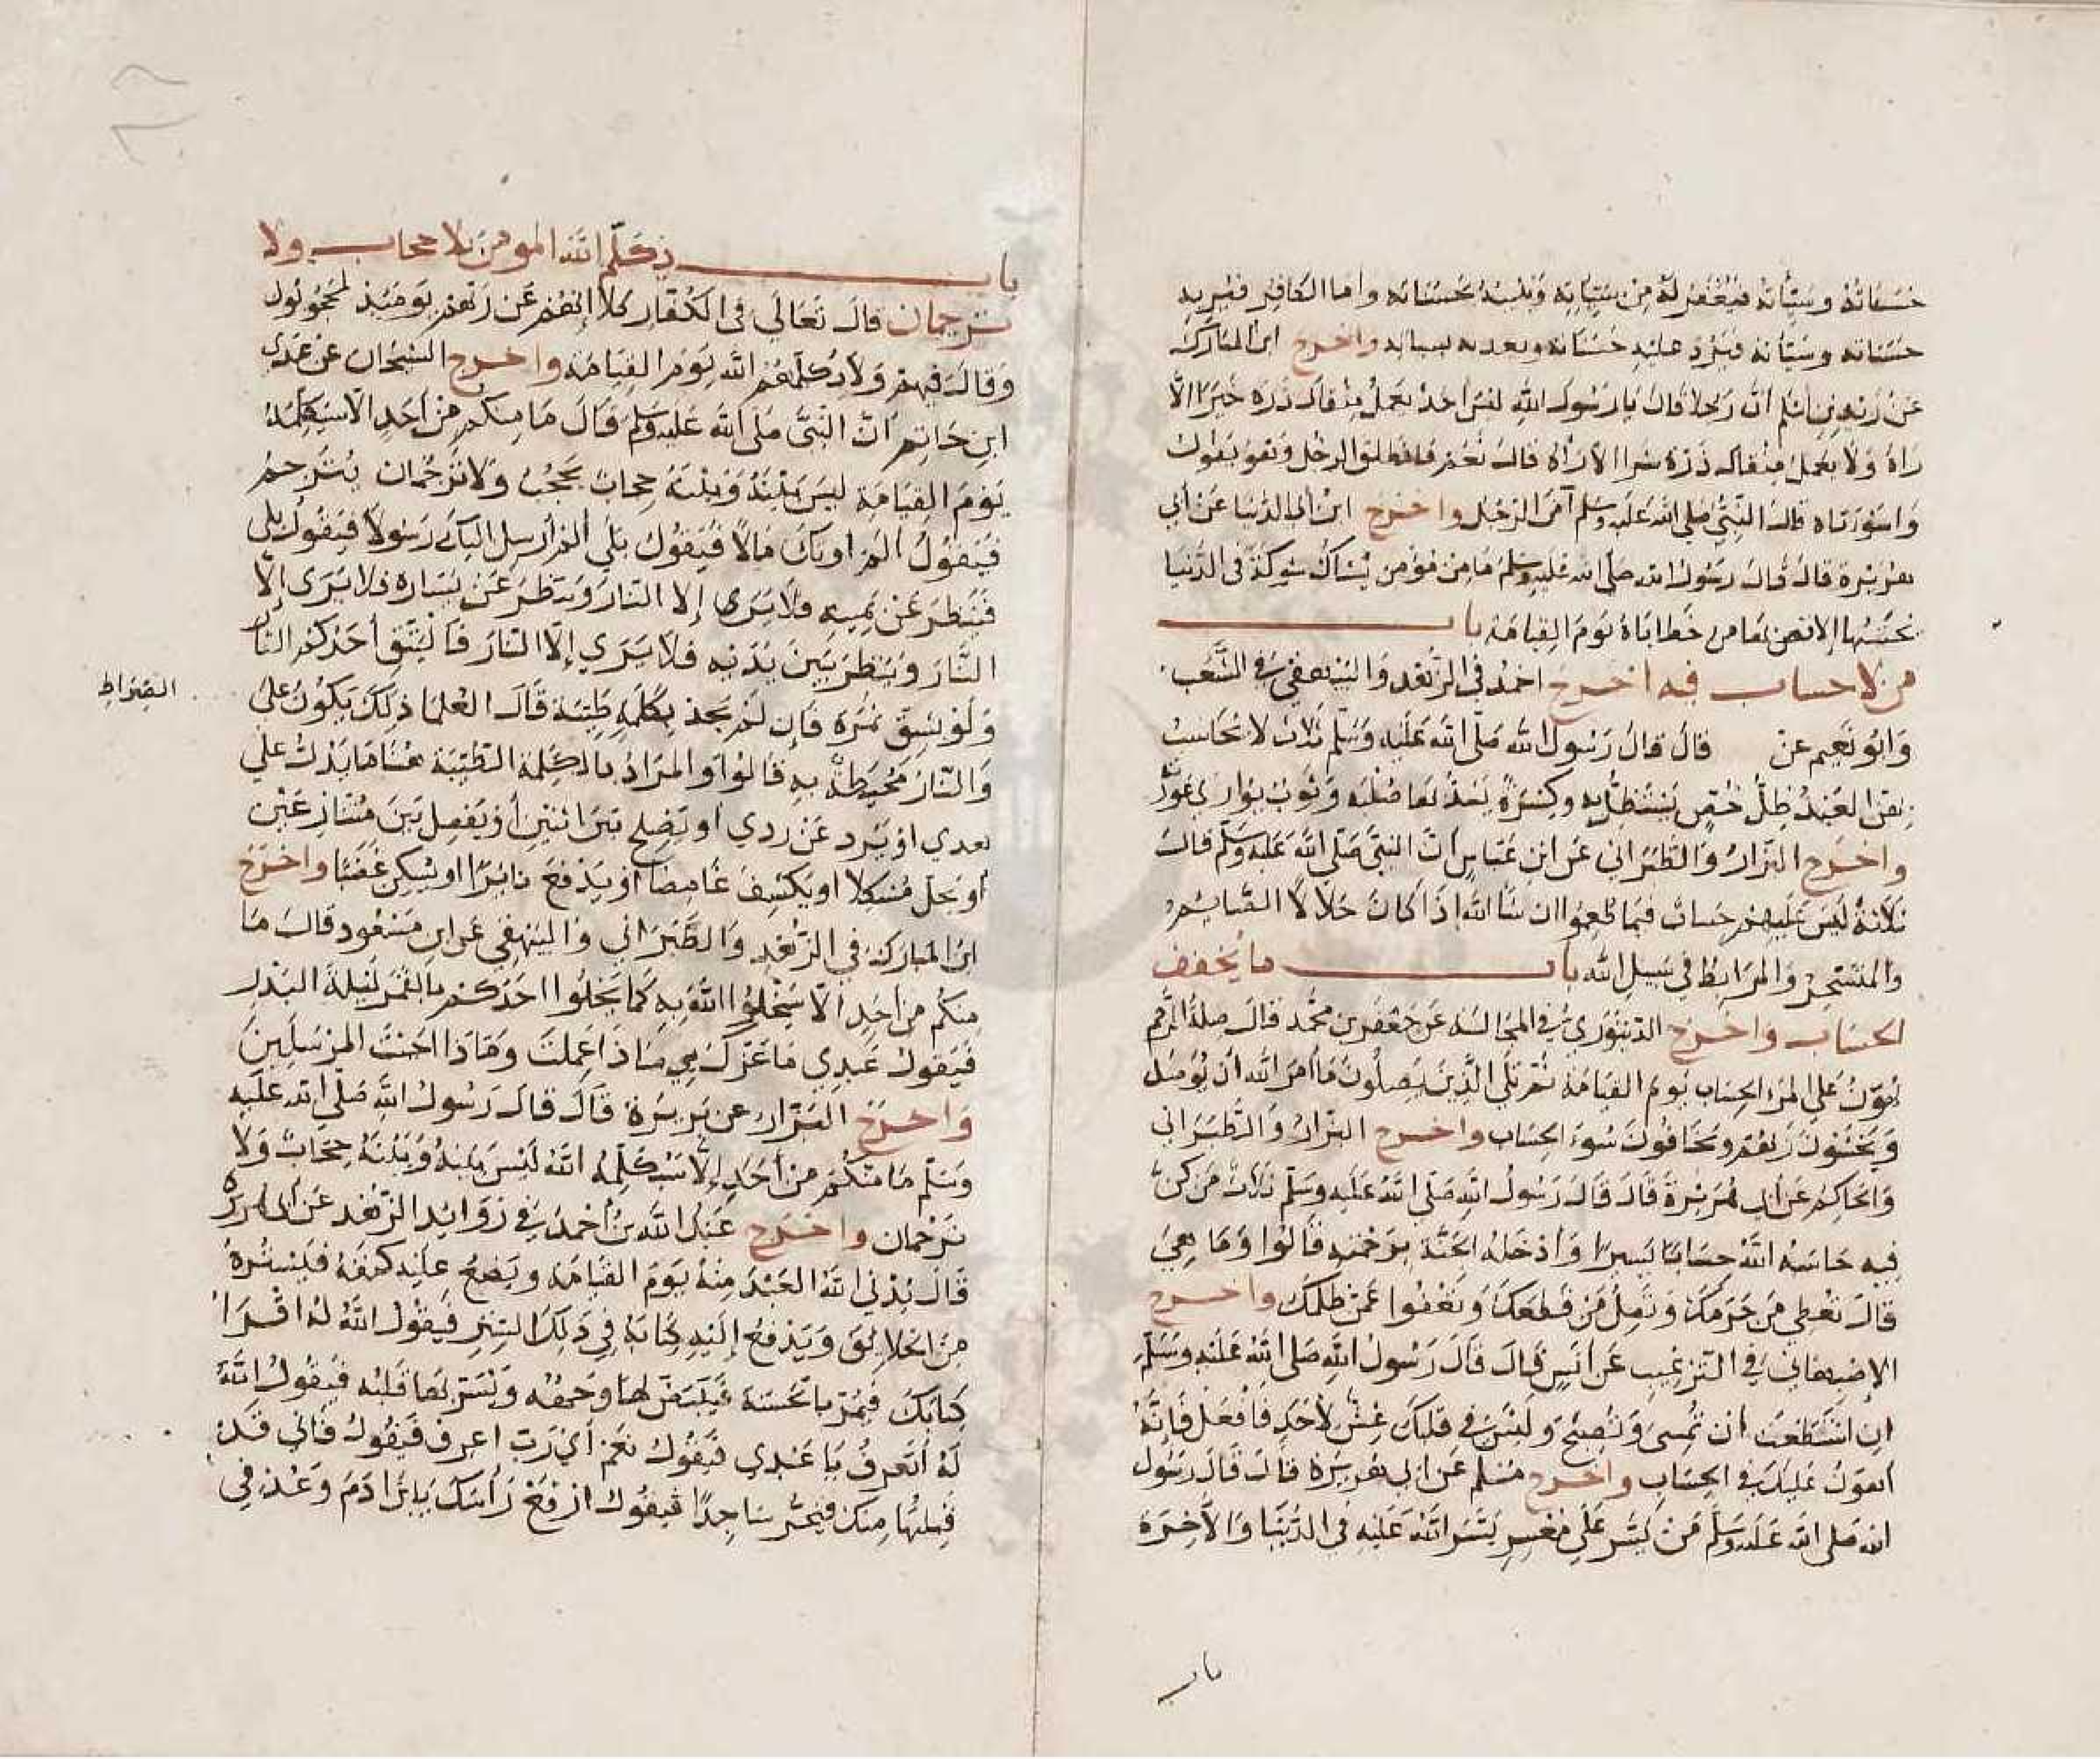 حسناته وسيئاته فيغفر له من سيئاته ويثيبه بحسناته واما الكافر فيريه
حسناته وسيئاته فيرد عليه حسناته ويعذبه بسيئاته واخرج ابن المبارك
عن زيد بن اسلم ان رجلا قال يا رسول الله ليس احد يعمل مثقال ذرة خيرا الا
راه ولا يعمل مثقال ذرة شرا الا راه قال نعم فانطلق الرجل وهو يقول
واسوءتاه قال النبي صلى الله عليه وسلم آمن الرجل واخرج ابن ابي الدنيا عن أبي
هريرة قال قال رسول الله صلى الله عليه وسلم ما من مؤمن يشاك شوكة في الدنيا
يحتسبها الا قص بها من خطاياه يوم القيامة باب
من لا حساب فيه اخرج احمد في الزهد والبيهقي في الشعب
وابو نعيم عن قال قال رسول الله صلى الله عليه وسلم ثلاث لا يحاسب
بهن العبد ظل خص يستظل به وكسرة يشد بها صلبه وثوب يواري عورته
واخرج البزار والطبراني عن ابن عباس أن النبي صلى الله عليه وسلم قال
ثلاثة ليس عليهم حساب فيما طعموا ان شا الله اذا كان حلالا الصائم
والمتسحر والمرابط في سبيل الله باب ما يخفف
الحساب واخرج الدينوري في المجالسة عن جعفر بن محمد قال صلة الرحم
تهون على المرء الحساب يوم القيامة ثم تلى الذين يصلون ما أمر الله أن يوصل
ويخشون ربهم ويخافون سوء الحساب واخرج البزار والطبراني
والحاكم عن ابي هريرة قال قال رسول الله صلى الله عليه وسلم ثلاث من كن
فيه حاسبه الله حسابا يسيرا وأدخله الجنة برحمته قالوا وما هي
قال تعطي من حرمك وتصل من قطعك وتعفوا عمن ظلمك واخرج
الاصبهاني في الترغيب عن أنس قال قال رسول الله صلى الله عليه وسلم
ان استطعت ان تمسى وتصبح وليس في قلبك غش لأحد فافعل فإنه
اهون عليك في الحساب واخرج مسلم عن ابي هريرة قال قال رسول
الله صلى الله عليه وسلم من يسر على معسر يسر الله عليه في الدنيا والآخرة
باب
باب يكلم الله المومن بلا حجاب ولا
ترجمان قال تعالى في الكفار كلا إنهم عن ربهم يومئذ لمحجوبون
وقال فيهم ولا يكلمهم الله يوم القيامة واخرج الشيخان عن عدى
ابن حاتم ان النبى صلى الله عليه وسلم قال ما منكم من أحد الا سيكلمه
يوم القيامة ليس بينه وبينه حجاب يحجب ولا ترجمان يترجم
فيقول الم اوتك مالا فيقول بلى الم ارسل اليك رسولا فيقول بلى
فينظر عن يمينه فلا يرى إلا النار وينظر عن يساره فلا يرى إلا
النار وينظر بين يديه فلا يرى إلا النار فاليتق أحدكم النار
ولو بشق تمرة فإن لم يجد بكلمة طيبة قال العلما ذلك يكون على
الصراط
والنار محيطة به قالوا والمراد بالكلمة الطيبة هنا ما يدل على
هدي او يرد عن ردي او يصلح بين اثنين أو يفصل بين متنازعين
أو يحل مشكلا او يكشف غامضا أو يدفع ثائرا او يسكن غضبا واخرج
ابن المبارك في الزهد والطبراني والبيهقي عن ابن مسعود قال ما
منكم من أحد الا سيخلوا الله به كما يخلوا احدكم بالقمر ليلة البدر
فيقول عبدي ما غرك بي ماذا عملت وماذا اجبت المرسلين
واخرج البزار عن بريرة قال قال رسول الله صلى الله عليه
وسلم ما منكم من أحد إلا سيكلمه الله ليس بينه وبينه حجاب ولا
ترجمان واخرج عبد الله بن أحمد في زوايد الزهد عن ابي هريرة
قال يدني الله العبد منه يوم القيامة ويضع عليه كنفه فيستره
من الخلائق ويدفع إليه كتابه في ذلك الستر فيقول الله له اقرا
كتابك فيمر بالحسنة فيبيض لها وجهه ويسر لها قلبه فيقول الله
له أتعرف يا عبدي فيقول نعم أي رب اعرف فيقول فاني قد
قبلتها منك فيخر ساجدا فيقول ارفع رأسك يا بن ادم وعد في